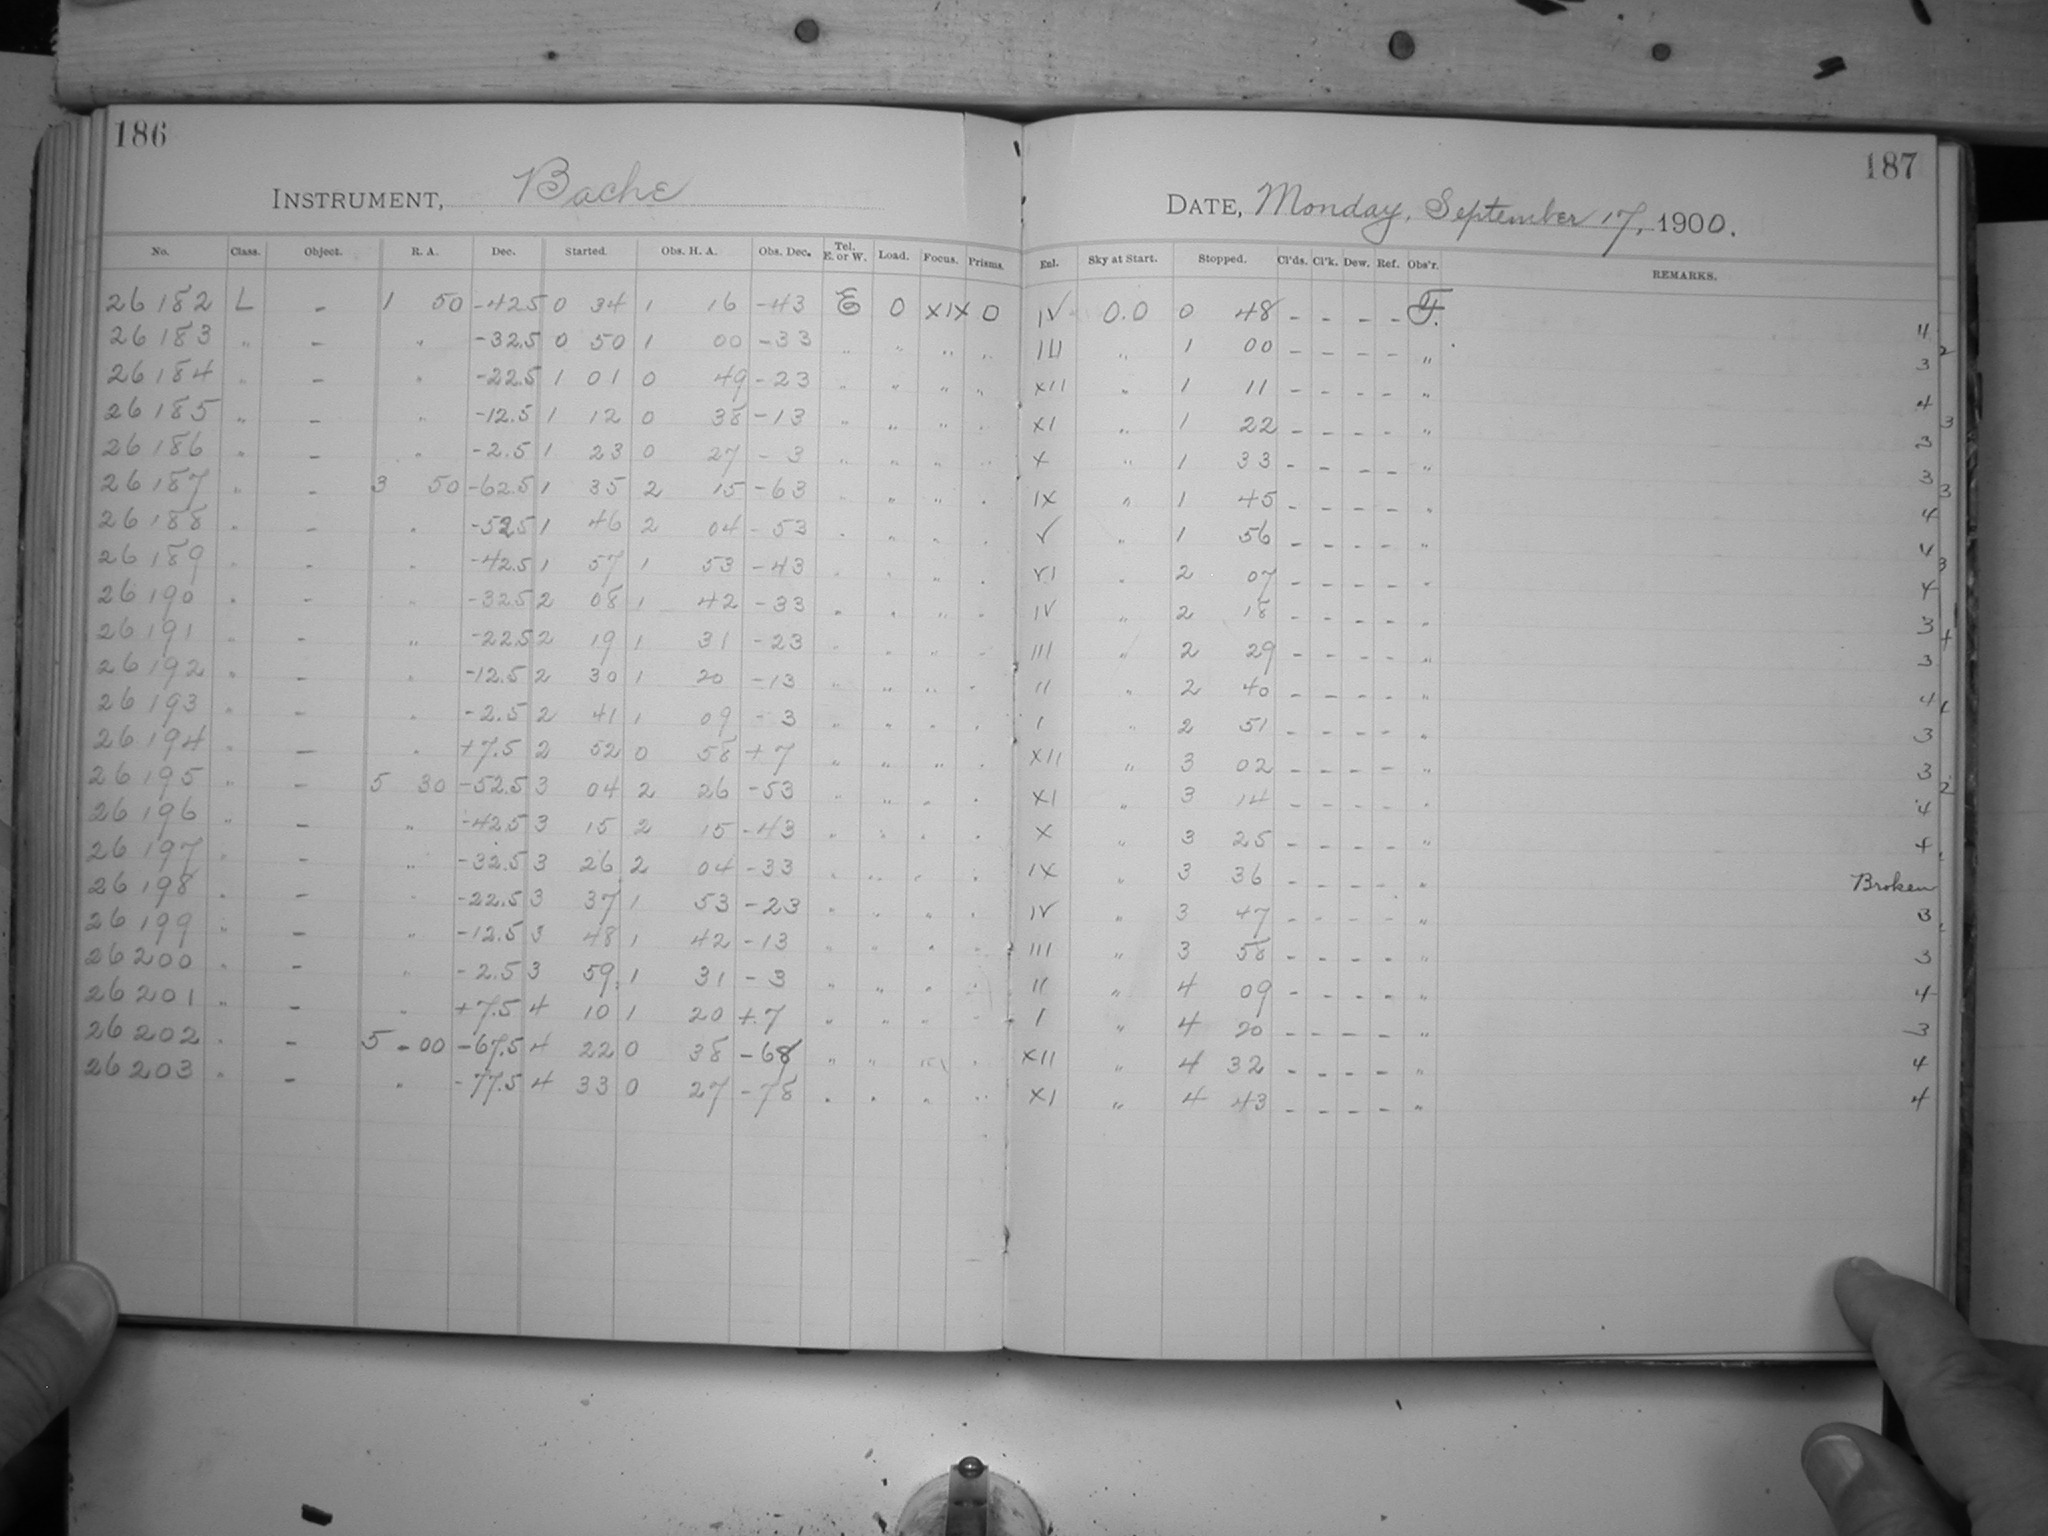 186
INSTRUMENT, Bache
No. Class. Object. R. A. Dec. Started. Obs. H. A. Obs. Dec. Tel. E. or W. Load. Focus. Prisms.
26182 L - 1 50 -42.5 0 34 1 16 -43 E 0 XIX 0
26183 " - " -32.5 0 50 1 00 -33 " " " "
26184 " - " -22.5 1 01 0 49 -23 " " " "
26185 " - " -12.5 1 12 0 38 -13 " " " "
26186 " - " -2.5 1 23 0 27 -3 " " " "
26187 " - 3 50 -62.5 1 35 2 15 -63 " " " "
26188 " - " -52.5 1 46 2 04 -53 " " " "
26189 " - " -42.5 1 57 1 53 -43 " " " "
26190 " - " -32.5 2 08 1 42 -33 " " " "
26191 " - " -22.5 2 19 1 31 -23 " " " "
26192 " - " -12.5 2 30 1 20 -13 " " " "
26193 " - " -2.5 2 41 1 09 -3 " " " "
26194 " - " +7.5 2 52 0 58 +7 " " " "
26195 " - 5 30 -52.5 3 04 2 26 -53 " " " "
26196 " - " -42.5 3 15 2 15 -43 " " " "
26197 " - " -32.5 3 26 2 04 -33 " " " "
26198 " - " -22.5 3 37 1 53 -23 " " " "
26199 " - " -12.5 3 48 1 42 -13 " " " "
26200 " - " -2.5 3 59 1 31 -3 " " " "
26201 " - " +7.5 4 10 1 20 +7 " " " "
26202 " - 5 00 -67.5 4 22 0 38 -68 " " " "
26203 " - " -77.5 4 33 0 27 -78 " " " "
187
DATE, Monday, September 17, 1900.
Enl. Sky at Start. Stopped. Cl'ds. Cl'k. Dew. Ref. Obs'r. REMARKS.
IV 0.0 0 48 - - - - F. 4
III " 1 00 - - - - " 3
XII " 1 11 - - - - " 4
XI " 1 22 - - - - " 3
X " 1 33 - - - - " 3
IX " 1 45 - - - - " 4
V " 1 56 - - - - " 4
VI " 2 07 - - - - " 4
IV " 2 18 - - - - " 3
III " 2 29 - - - - " 3
II " 2 40 - - - - " 4
I " 2 51 - - - - " 3
XII " 3 02 - - - - " 3
XI " 3 14 - - - - " 4
X " 3 25 - - - - " 4
IX " 3 36 - - - - " Broken
IV " 3 47 - - - - " 3
III " 3 58 - - - - " 3
II " 4 09 - - - - " 4
I " 4 20 - - - - " 3
XII " 4 32 - - - - " 4
XI " 4 43 - - - - " 4